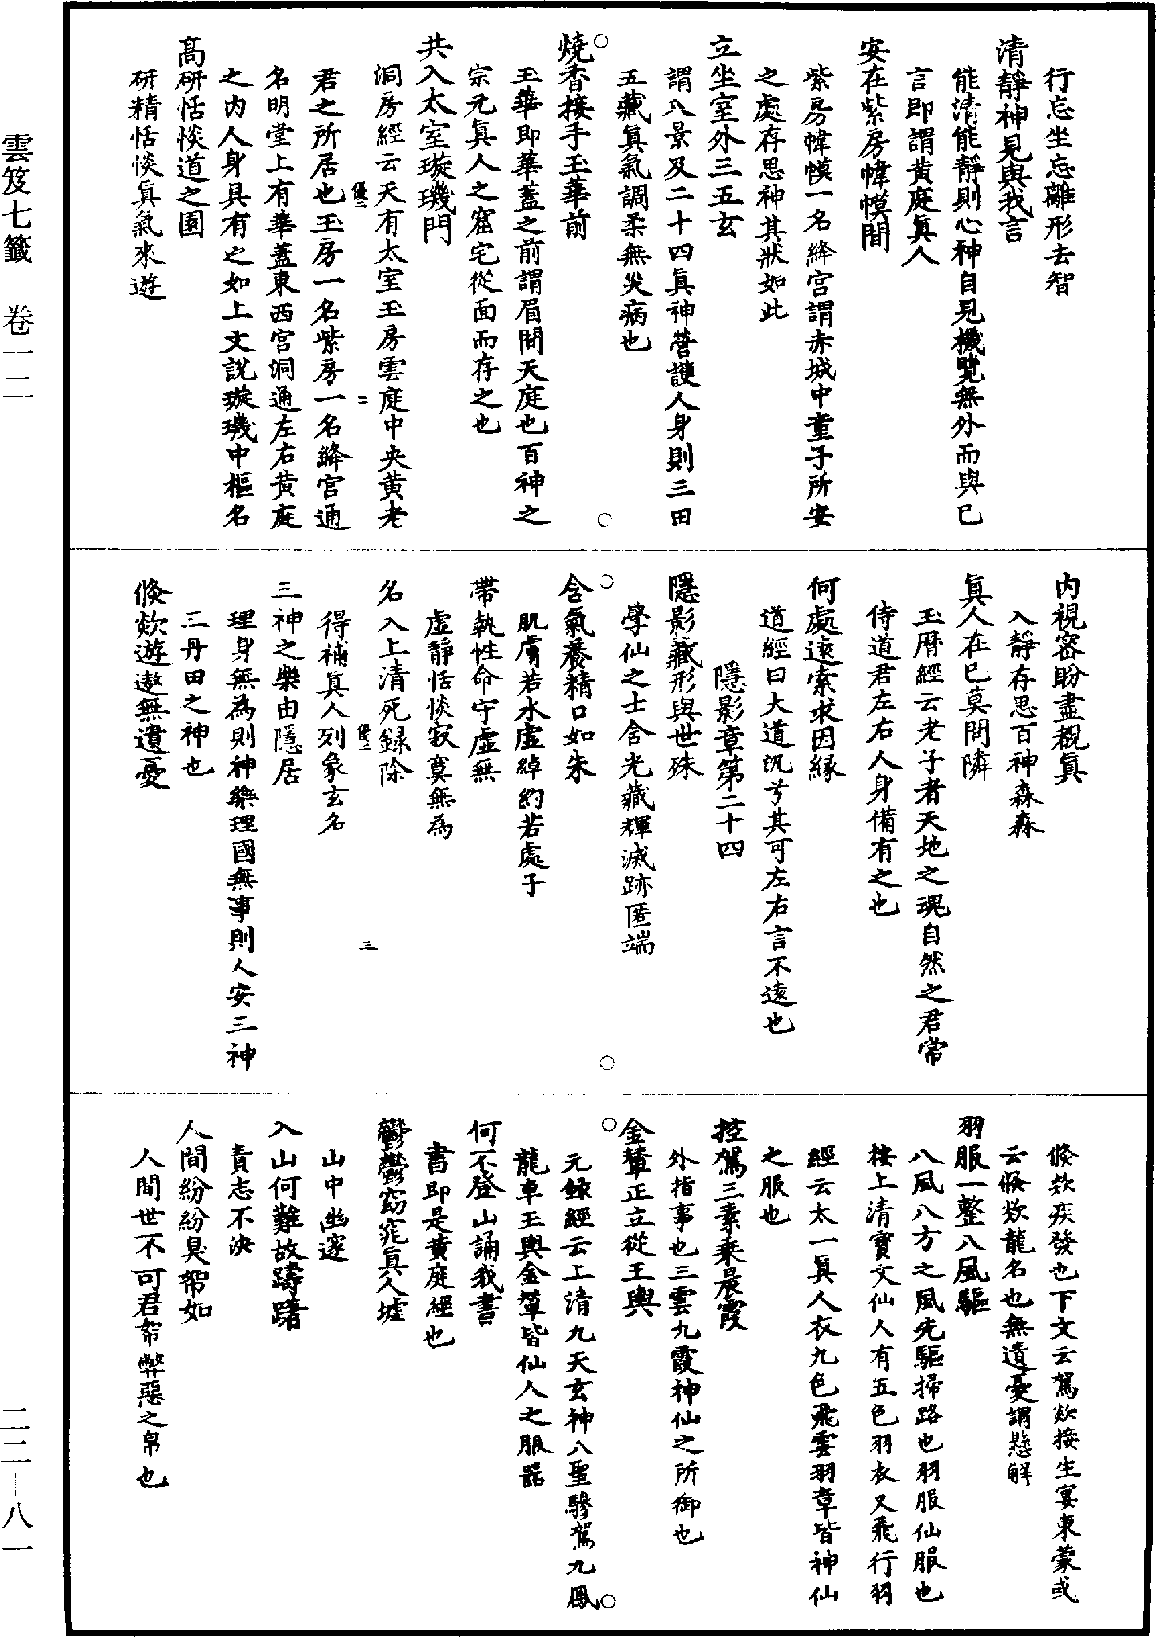 行忘坐忘離形去智
清靜神見與我言
能清能靜則心神自見機覽無外而與已
言即謂黃庭真人
安在紫房幃幙間
紫房幃幙一名絳宮謂赤城中童子所安
之處存思神其狀如此
立坐室外三五玄
謂八景及二十四真神營護人身則三田
五藏真氣調柔無災病也
燒香接手玉華前
玉華即華蓋之前謂眉間天庭也百神之
宗元真人之窟宅從面而存之也
共入太室璇璣門
洞房經云天有太室玉房雲庭中央黃老
優二 二
君之所居也玉房一名紫房一名絳宮通
名明堂上有華蓋東西宮洞通左右黃庭
之內人身具有之如上文說璇璣中樞名
高研恬惔道之園
研精恬惔真氣來遊
內視密盼盡覩真
入靜存思百神森森
真人在已莫問隣
玉曆經云老子者天地之魂自然之君常
侍道君左右人身備有之也
何處遠索求因緣
道經曰大道汎兮其可左右言不遠也
隱影章第二十四
隱影藏形與世殊
學仙之士含光藏輝滅跡匿端
含氣養精口如朱
肌膚若氷虛綽約若處子
帶執性命守虛無
虛靜恬惔寂寞無為
名入上清死錄除
優二 三
得補真人列象玄名
三神之樂由隱居
理身無為則神樂理國無事則人安三神
三丹田之神也
倏欻遊遨無遺憂
倏欻疾發也下文云駕欻接生宴東蒙或
云倏欻龍名也無遺憂謂懸解
羽服一整八風驅
八風八方之風先驅掃路也羽服仙服也
按上清寶文仙人有五色羽衣又飛行羽
經云太一真人衣九色飛雲羽章皆神仙
之服也
控駕三素乘晨霞
外指事也三雲九霞神仙之所御也
金輦正立從玉輿
元錄經云上清九天玄神八聖驂駕九鳳
龍車玉輿金輦皆仙人之服器
何不登山誦我書
書即是黃庭經也
鬱鬱窈窕真人墟
山中幽邃
入山何難故躊躇
責志不決
人間紛紛臭帤如
人間世不可君帤弊惡之帛也
雲笈七籤 卷一二
二二—八一